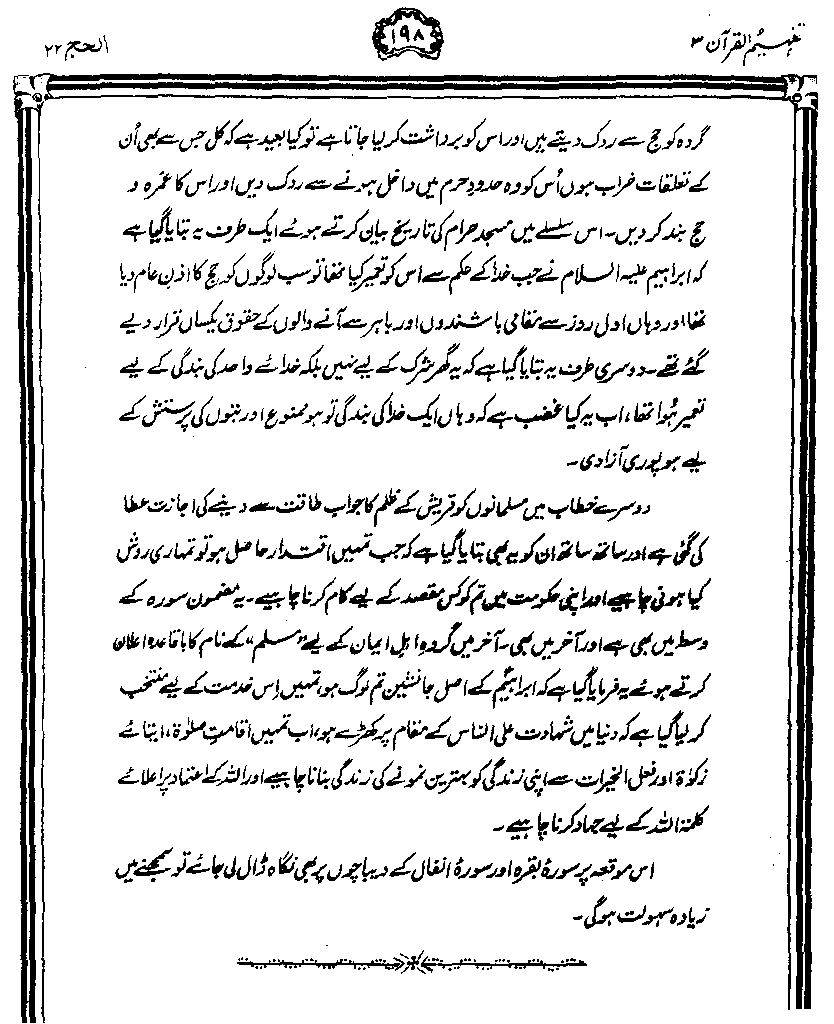 تفہیم القرآن ۳
۱۹۸
الحج ۲۲
گروہ کو حج سے روک دیتے ہیں اور اس کو برداشت کر لیا جاتا ہے تو کیا بعید ہے کہ کل جس سے بھی اُن
کے تعلقات خراب ہوں اُس کو وہ حدودِ حرم میں داخل ہونے سے روک دیں اور اس کا عمرہ و
حج بند کر دیں۔ اس سلسلے میں مسجد حرام کی تاریخ بیان کرتے ہوئے ایک طرف یہ بتایا گیا ہے
کہ ابراہیم علیہ السلام نے جب خدا کے حکم سے اس کو تعمیر کیا تھا تو سب لوگوں کو حج کا اذن عام دیا
تھا اور وہاں اول روز سے مقامی باشندوں اور باہر سے آنے والوں کے حقوق یکساں قرار دیے
گئے تھے۔ دوسری طرف یہ بتایا گیا ہے کہ یہ گھر شرک کے لیے نہیں بلکہ خدائے واحد کی بندگی کے لیے
تعمیر ہُوا تھا، اب یہ کیا غضب ہے کہ وہاں ایک خدا کی بندگی تو ہو ممنوع اور بتوں کی پرستش کے
لیے ہو پوری آزادی۔
دوسرے خطاب میں مسلمانوں کو قریش کے ظلم کا جواب طاقت سے دینے کی اجازت عطا
کی گئی ہے اور ساتھ ساتھ ان کو یہ بھی بتایا گیا ہے کہ جب تمہیں اقتدار حاصل ہو تو تمہاری روش
کیا ہونی چاہیے اور اپنی حکومت میں تم کو کس مقصد کے لیے کام کرنا چاہیے۔ یہ مضمون سورہ کے
وسط میں بھی ہے اور آخر میں بھی۔ آخر میں گروہ اہل ایمان کے لیے "مسلم" کے نام کا باقاعدہ اعلان
کرتے ہوئے یہ فرمایا گیا ہے کہ ابراہیمؑ کے اصل جانشین تم لوگ ہو، تمہیں اِس خدمت کے لیے منتخب
کر لیا گیا ہے کہ دنیا میں شہادت علی الناس کے مقام پر کھڑے ہو، اب تمہیں اقامتِ صلوٰۃ، ایتائے
زکوٰۃ اور فعل الخیرات سے اپنی زندگی کو بہترین نمونے کی زندگی بنانا چاہیے اور اللہ کے اعتماد پر اعلائے
کلمۃ اللہ کے لیے جہاد کرنا چاہیے۔
اس موقعہ پر سورۂ بقرہ اور سورۂ انفال کے دیباچوں پر بھی نگاہ ڈال لی جائے تو سمجھنے میں
زیادہ سہولت ہوگی۔